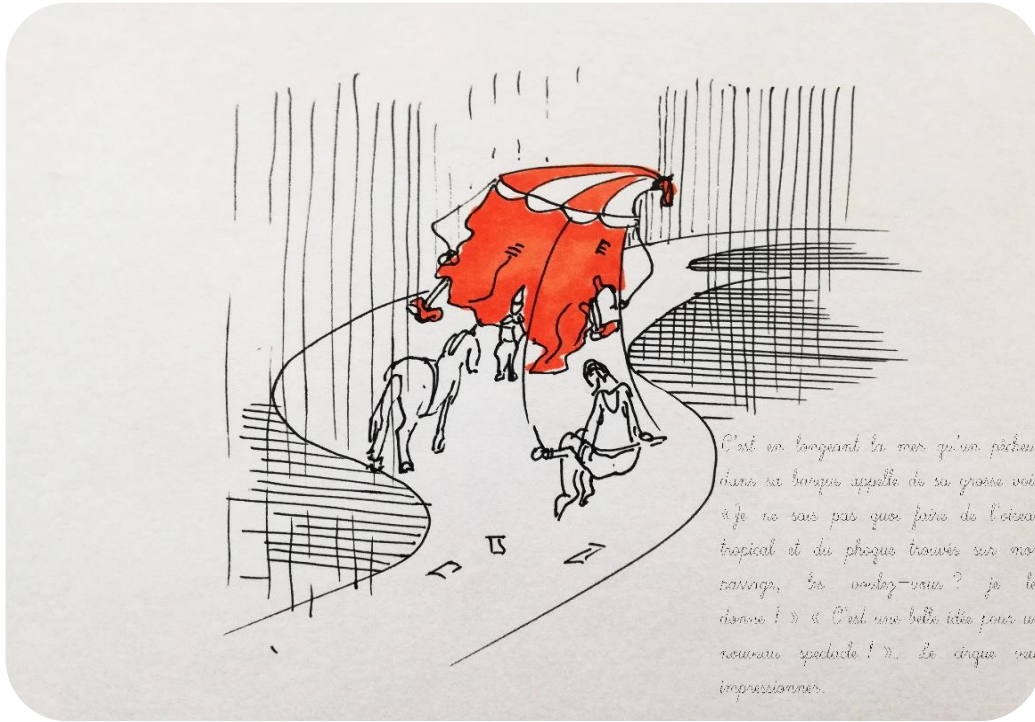 C'est en longeant la mer qu'un pêcheu
dans sa barque appelle de sa grosse voi
« Je ne sais pas quoi faire de l'oisea
tropical et du phoque trouvés sur mo
passage, les voulez-vous ? je le
donne ! » « C'est une belle idée pour u
nouveau spectacle ! ». Le cirque veu
impressionner.